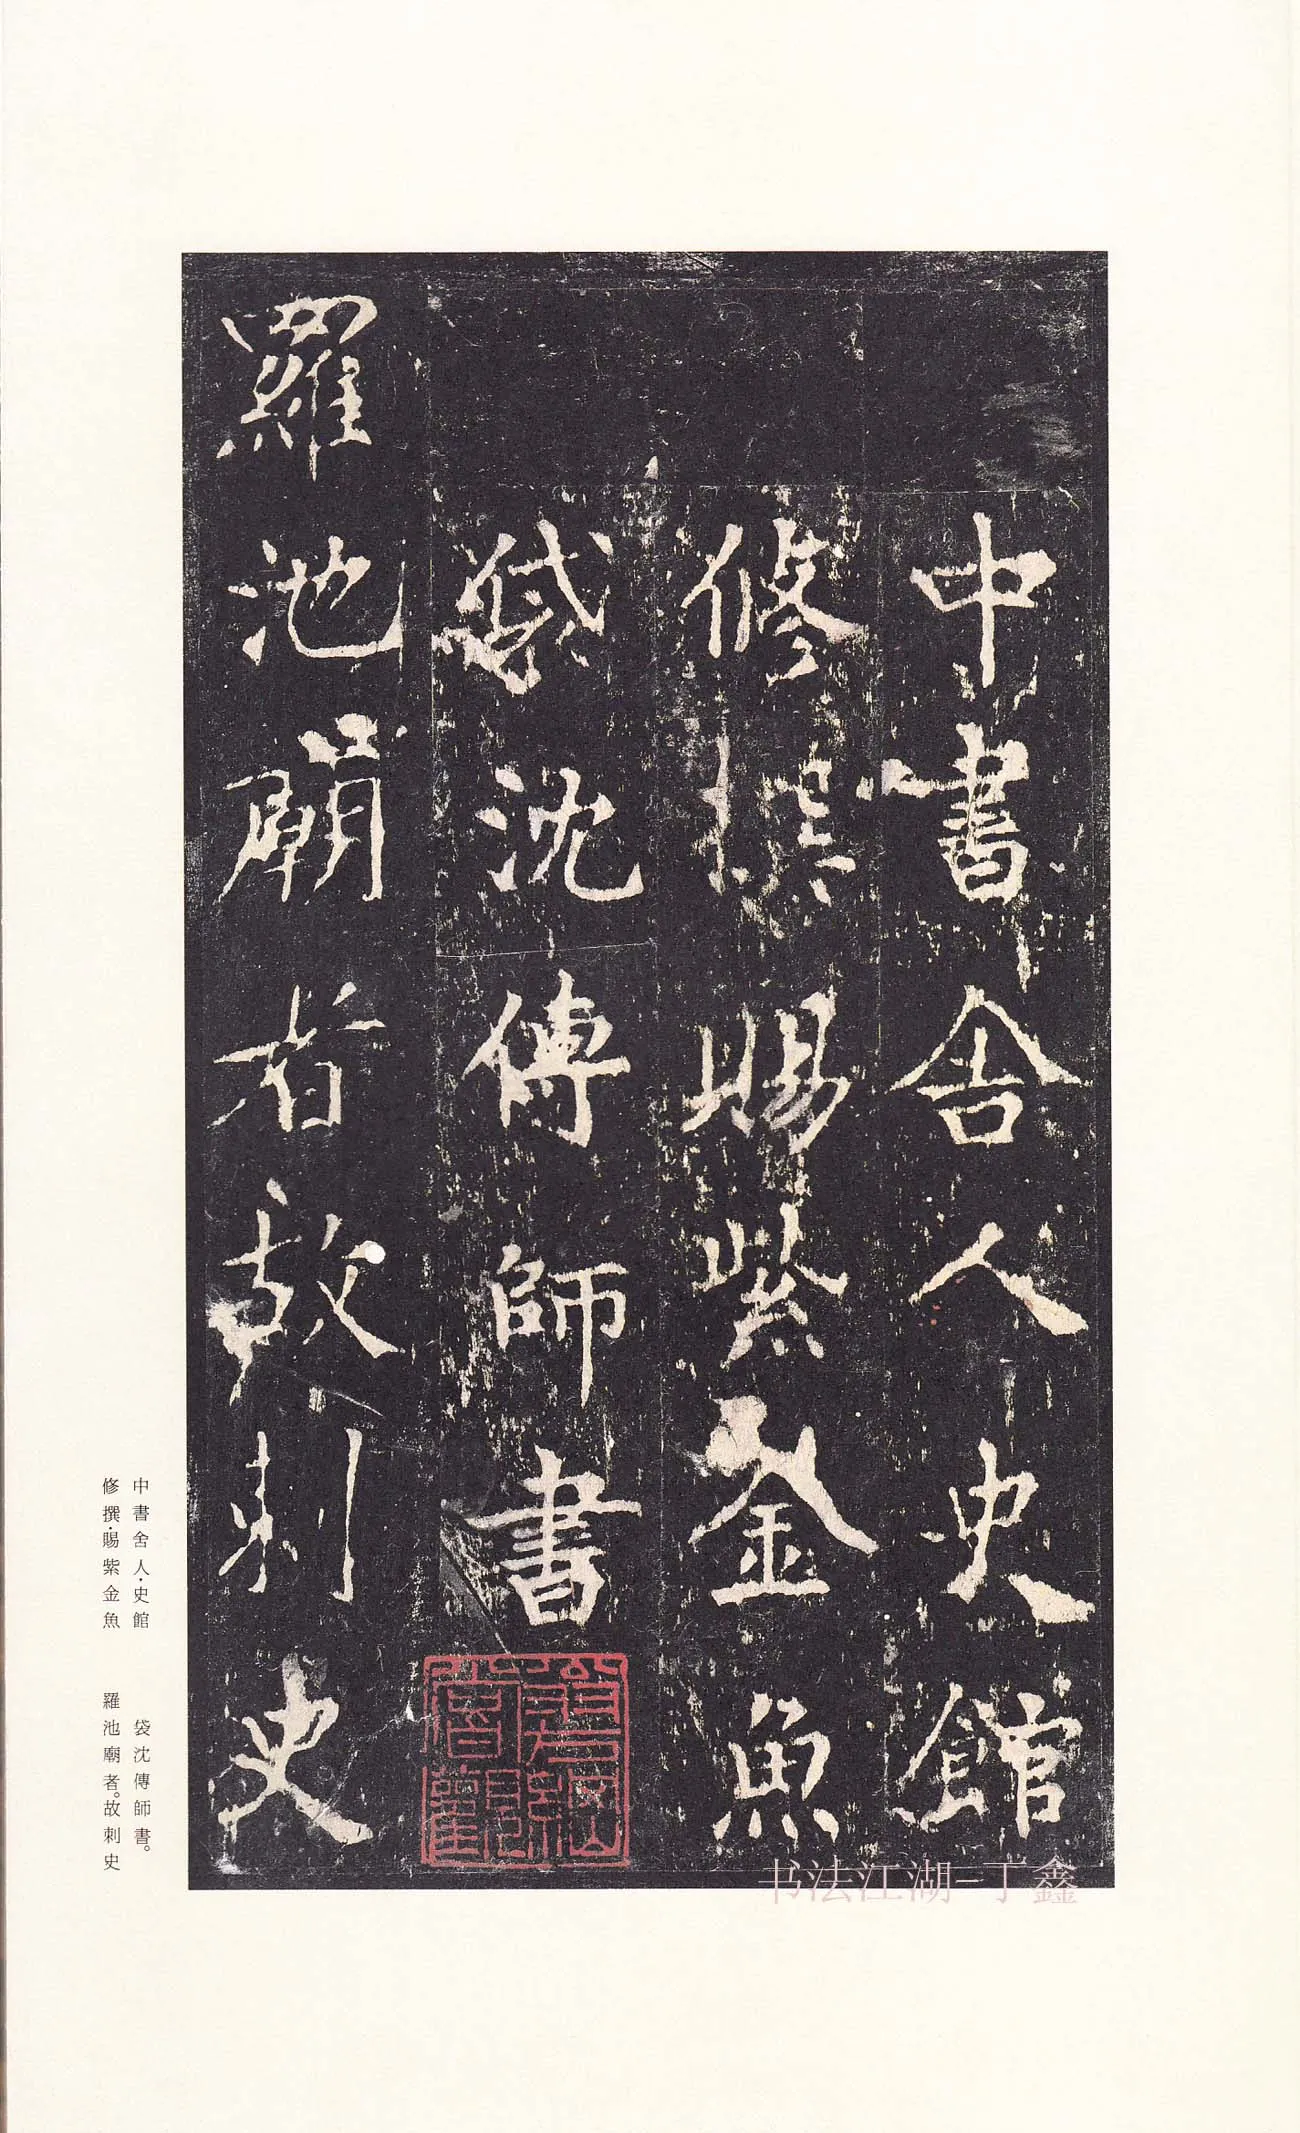 中書舍人史館
修撰賜紫金魚
袋沈傳師書
羅池廟者故刺史
中書舍人·史館
修撰·賜紫金魚
袋沈傳師書。
羅池廟者。故刺史
书法江湖-丁鑫